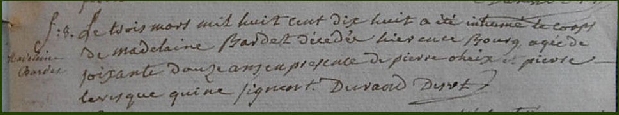 f: 8. Le trois mars mil huit cent dix huit a été inhumé le corps
Madelaine Bardet
de madelaine Bardet décédée hier en ce Bourg, agée de
soixante douze ans en presence de pierre choix et pierre
levesque qui ne signent. Durand Des.t